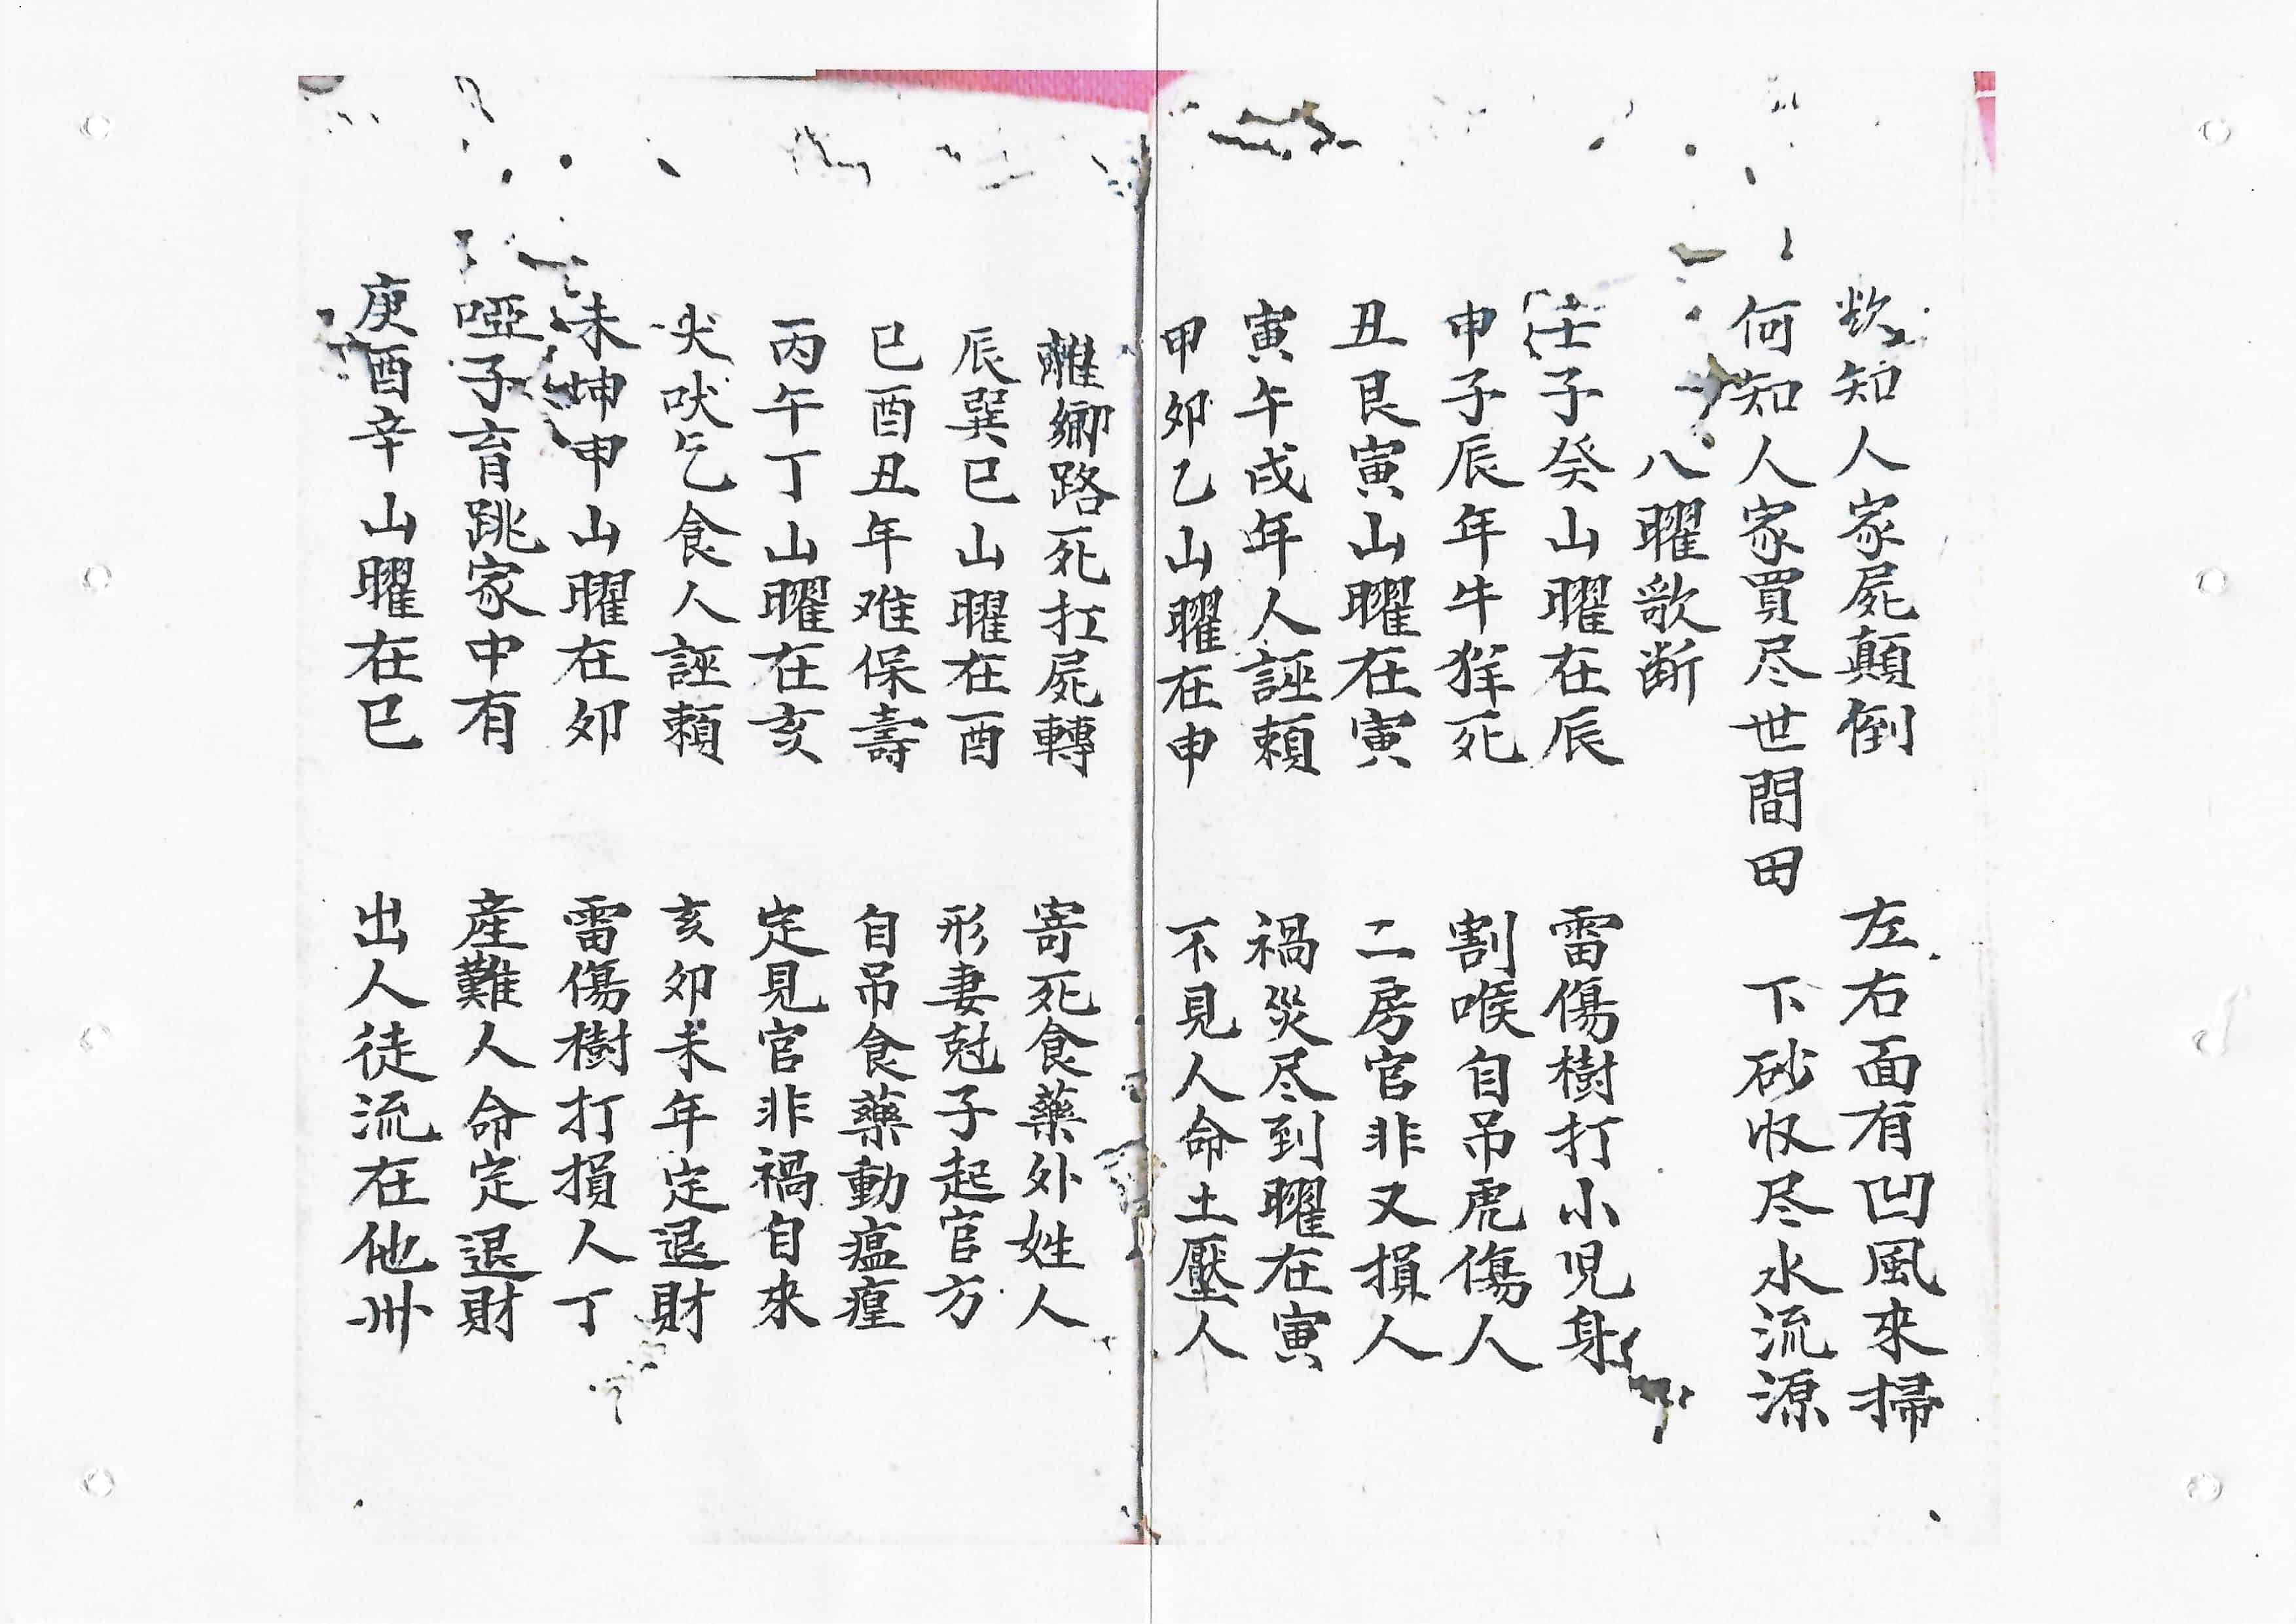 欲知人家屍顛倒　左右面有凹風來掃
何知人家買尽世間田　下砂収尽水流源
八曜歌断
壬子癸山曜在辰　雷傷樹打小児身
申子辰年牛𤙩死　割喉自吊虎傷人
丑艮寅山曜在寅　二房官非又損人
寅午戌年人誣頼　禍災尽到曜在寅
甲卯乙山曜在申　不見人命土壓人
離鄉路死扛屍轉　寄死食藥外姓人
辰巽巳山曜在酉　形妻尅子起官方
巳酉丑年难保壽　自吊食藥動瘟瘟
丙午丁山曜在亥　定見官非禍自來
犬吠乞食人誣頼　亥卯未年定退財
未坤申山曜在卯　雷傷樹打損人丁
啞子育跳家中有　產難人命定退財
庚酉辛山曜在巳　出人徒流在他州